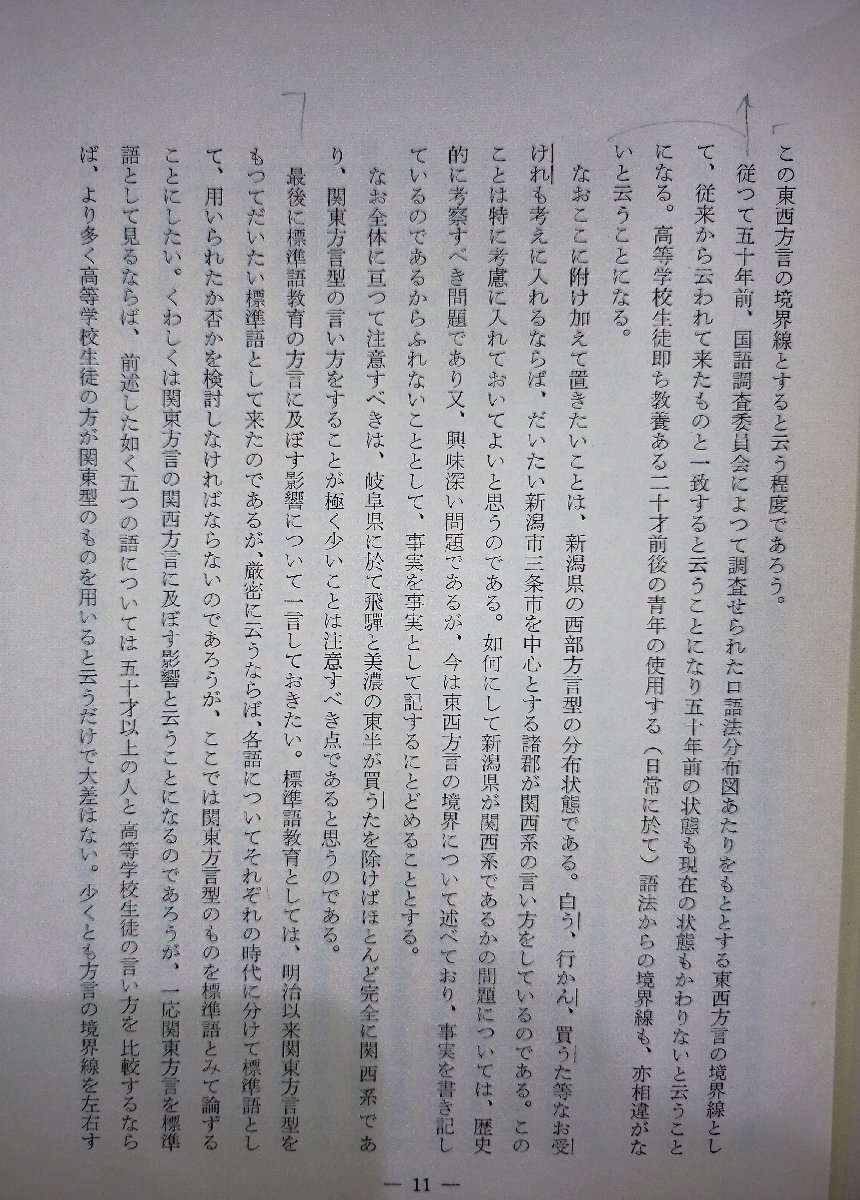 この東西方言の境界線とすると云う程度であろう。
従つて五十年前、国語調査委員会によつて調査せられた口語法分布図あたりをもととする東西方言の境界線とし
て、従来から云われて来たものと一致すると云うことになり五十年前の状態も現在の状態もかわりないと云うこと
になる。高等学校生徒即ち教養ある二十才前後の青年の使用する（日常に於て）語法からの境界線も、亦相違がな
いと云うことになる。
なおここに附け加えて置きたいことは、新潟県の西部方言型の分布状態である。白う、行かん、買うた等なお受
けれも考えに入れるならば、だいたい新潟市三条市を中心とする諸郡が関西系の言い方をしているのである。この
ことは特に考慮に入れておいてよいと思うのである。如何にして新潟県が関西系であるかの問題については、歴史
的に考察すべき問題であり又、興味深い問題であるが、今は東西方言の境界について述べており、事実を書き記し
ているのであるからふれないこととして、事実を事実として記するにとどめることとする。
なお全体に亘つて注意すべきは、岐阜県に於て飛驒と美濃の東半が買うたを除けばほとんど完全に関西系であ
り、関東方言型の言い方をすることが極く少いことは注意すべき点であると思うのである。
最後に標準語教育の方言に及ぼす影響について一言しておきたい。標準語教育としては、明治以来関東方言型を
もつてだいたい標準語として来たのであるが、厳密に云うならば、各語についてそれぞれの時代に分けて標準語とし
て、用いられたか否かを検討しなければならないのであろうが、ここでは関東方言型のものを標準語とみて論ずる
ことにしたい。くわしくは関東方言の関西方言に及ぼす影響と云うことになるのであろうが、一応関東方言を標準
語として見るならば、前述した如く五つの語については五十才以上の人と高等学校生徒の言い方を比較するなら
ば、より多く高等学校生徒の方が関東型のものを用いると云うだけで大差はない。少くとも方言の境界線を左右す
— 11 —